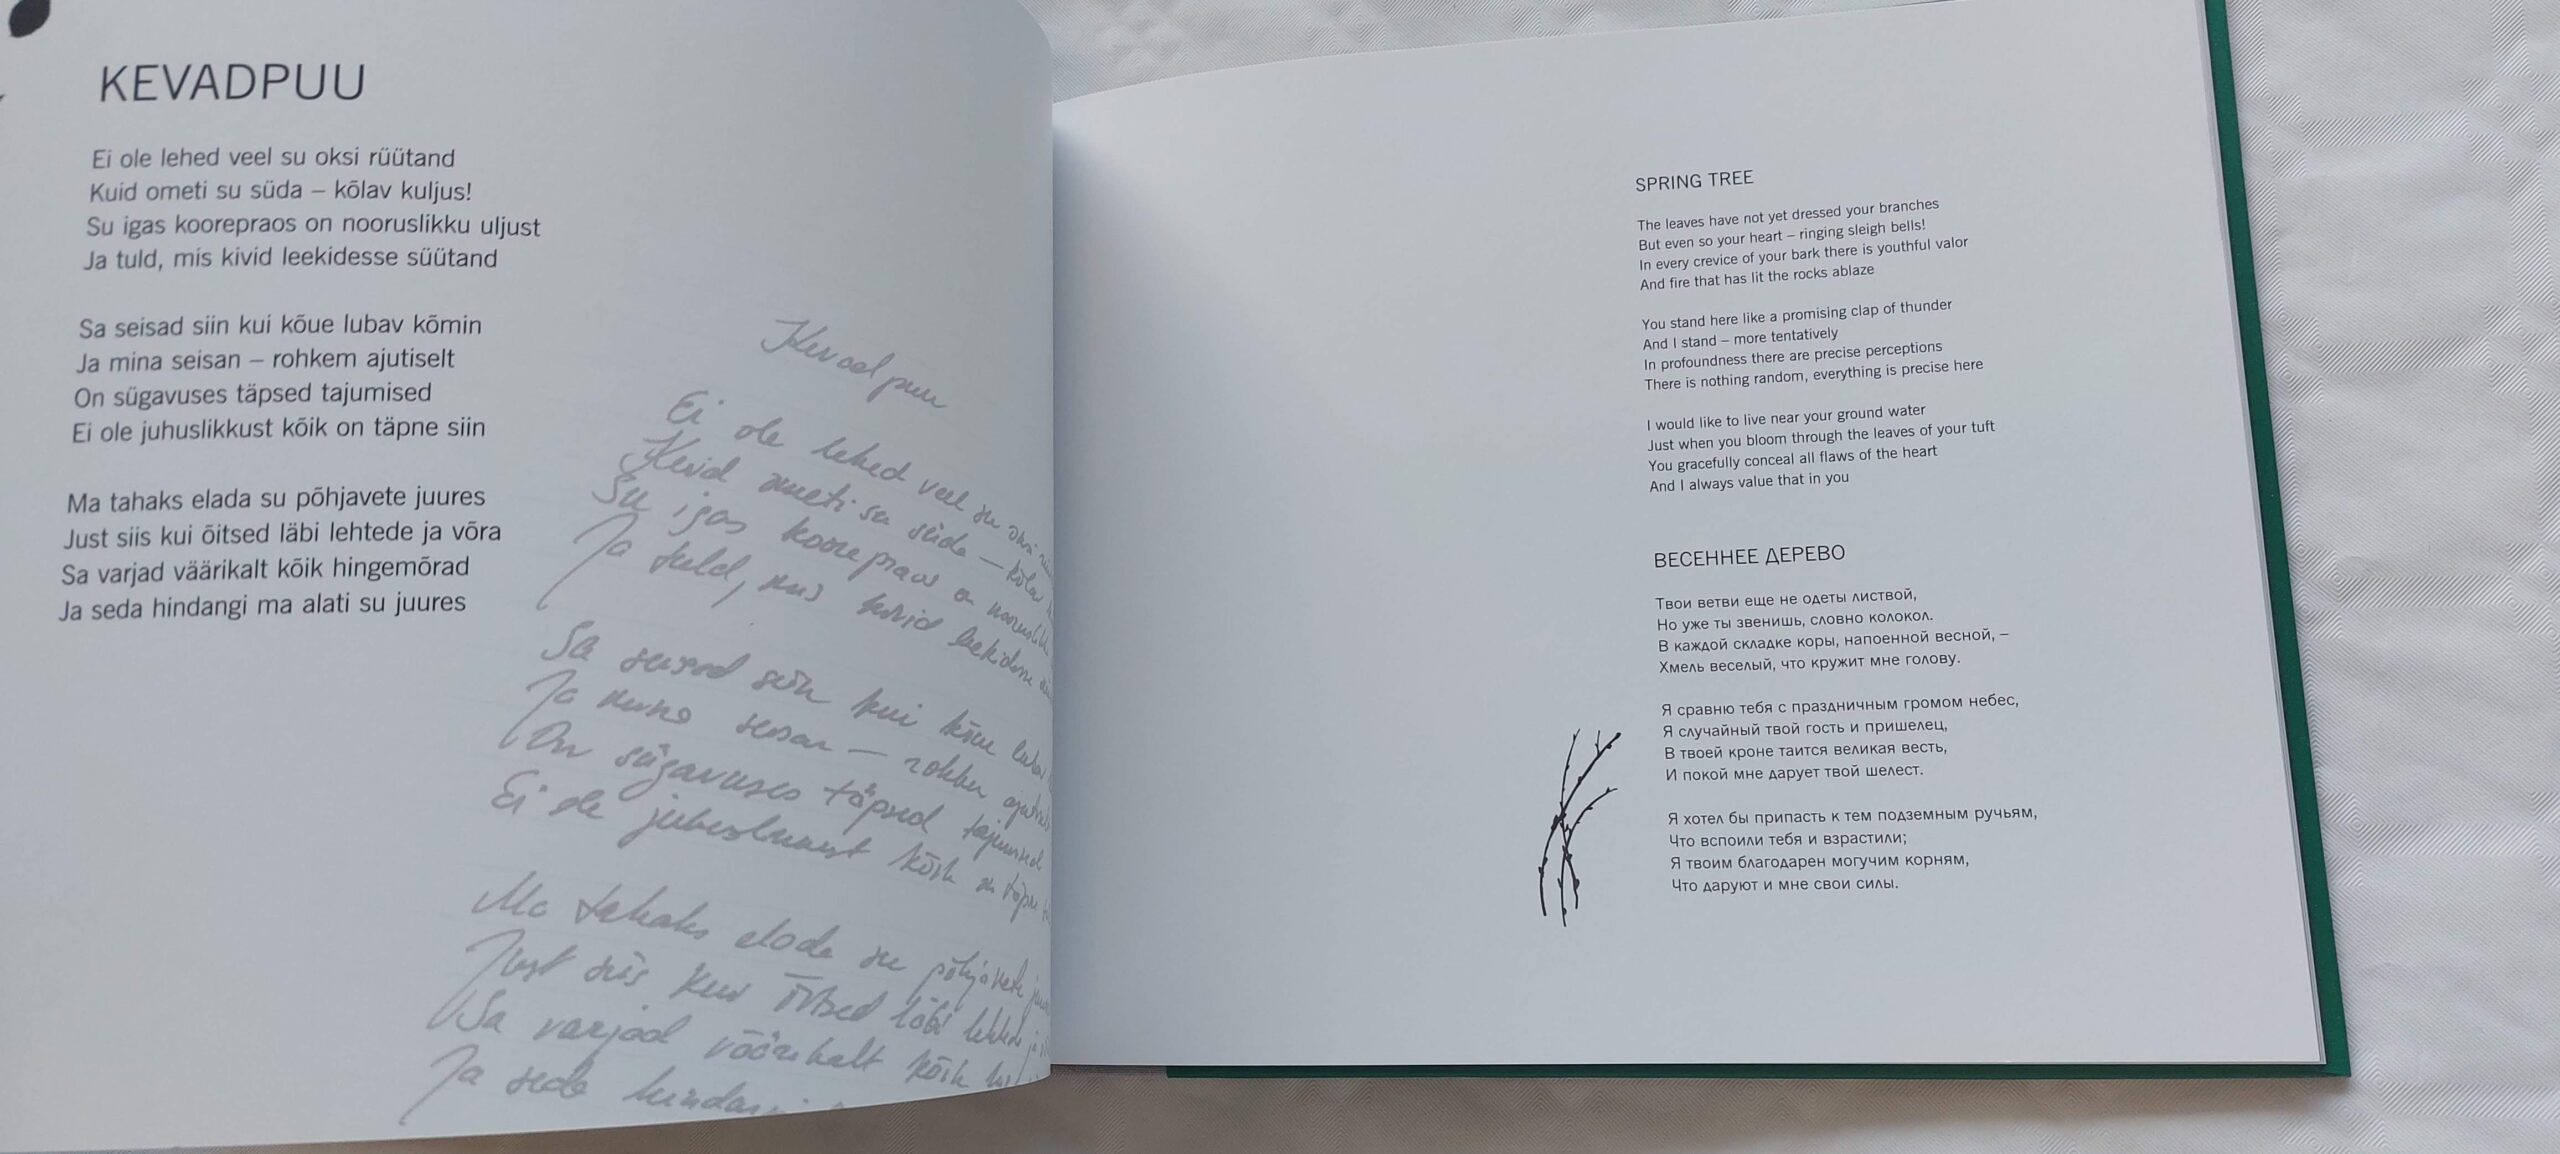 KEVADPUU
Ei ole lehed veel su oksi rüütand
Kuid ometi su süda – kõlav kuljus!
Su igas koorepraos on nooruslikku uljust
Ja tuld, mis kivid leekidesse süütand
Sa seisad siin kui kõue lubav kõmin
Ja mina seisan – rohkem ajutiselt
On sügavuses täpsed tajumised
Ei ole juhuslikkust kõik on täpne siin
Ma tahaks elada su põhjavete juures
Just siis kui õitsed läbi lehtede ja võra
Sa varjad väärikalt kõik hingemõrad
Ja seda hindangi ma alati su juures
Kevadpuu
Ei ole lehed veel su oksi
Kuid ometi su süda – kõlav
Su igas koorepraos on nooruslikku
Ja tuld, mis kivid leekidesse
Sa seisad siin kui kõue lubav
Ja mina seisan – rohkem ajutiselt
On sügavuses täpsed tajumised
Ei ole juhuslikkust kõik on täpne
Ma tahaks elada su põhjavete
Just siis kui õitsed läbi lehtede ja
Sa varjad väärikalt kõik
Ja seda
SPRING TREE
The leaves have not yet dressed your branches
But even so your heart – ringing sleigh bells!
In every crevice of your bark there is youthful valor
And fire that has lit the rocks ablaze
You stand here like a promising clap of thunder
And I stand – more tentatively
In profoundness there are precise perceptions
There is nothing random, everything is precise here
I would like to live near your ground water
Just when you bloom through the leaves of your tuft
You gracefully conceal all flaws of the heart
And I always value that in you
ВЕСЕННЕЕ ДЕРЕВО
Твои ветви еще не одеты листвой,
Но уже ты звенишь, словно колокол.
В каждой складке коры, напоенной весной, –
Хмель веселый, что кружит мне голову.
Я сравню тебя с праздничным громом небес,
Я случайный твой гость и пришелец,
В твоей кроне таится великая весть,
И покой мне дарует твой шелест.
Я хотел бы припасть к тем подземным ручьям,
Что вспоили тебя и взрастили;
Я твоим благодарен могучим корням,
Что даруют и мне свои силы.